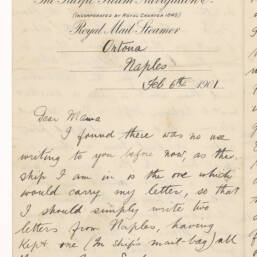 The Pacific Steam Navigation Co.
(INCORPORATED BY ROYAL CHARTER 1840)
Royal Mail Steamer
Ortona
Naples
Feb 6th 1901
Dear Mama
I found there was no use
writing to you before now, as the
ship I am in is the one which
would carry my letter, so that
I should simply write two
letters from Naples, having
kept one (In ship's mail-bag) all